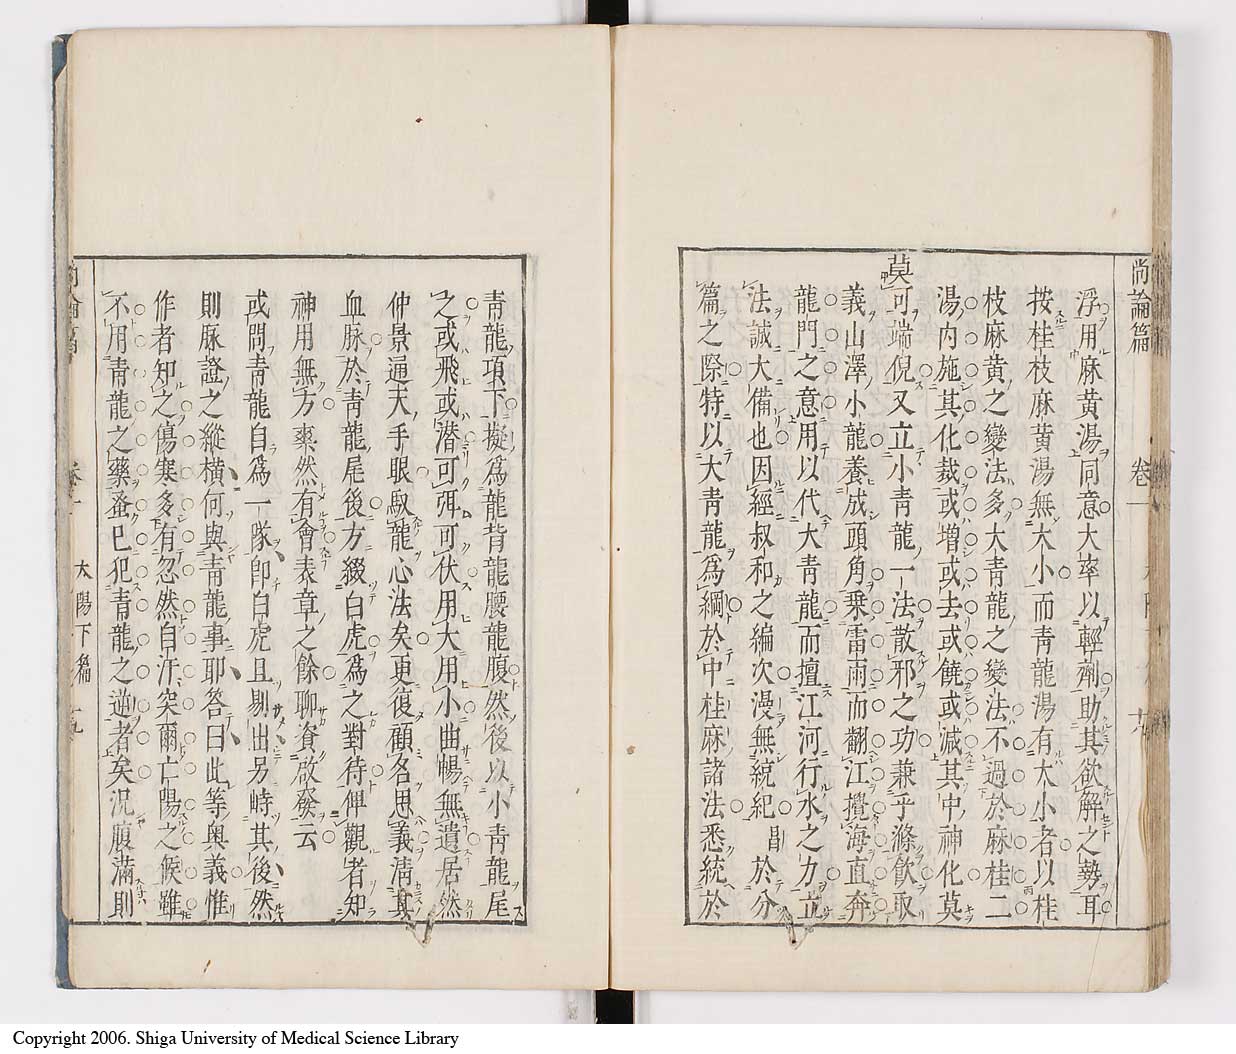 尚論篇
浮用麻黄湯同意大率以輕劑助其欲解之勢耳
按桂枝麻黄湯無大小而青龍湯有大小者以桂
枝麻黄之變法多大青龍之變法不過於麻桂二
湯内施其化裁或增或去或饒或減其中神化莫
莫可端倪又立小青龍一法散邪之功兼乎滌飲取
義山澤小龍養成頭角乗雷雨而翻江攪海直奔
龍門之意用以代大青龍而擅江河行水之力立
法誠大備也因經叔和之編次漫無統紀昌於分
篇之際特以大青龍爲綱於中桂麻諸法悉統於
青龍項下擬爲龍背龍腰龍腹然後以小青龍尾
之或飛或潛可弭可伏用大用小曲暢無遺居然
仲景通天手眼馭龍心法矣更復顧名思義清其
血脈於青龍尾後方綴白虎爲之對待俾觀者知
神用無方爽然有會表章之餘聊資啟發云
或問青龍自爲一隊即白虎且剔出另峙其後然
則脈證之縱横何與青龍事耶答曰此等奥義惟
作者知之傷寒多有忽然自汗突爾亡陽之候雖
不用青龍之藥蚤已犯青龍之逆者矣況腹滿則
太陽下編
Copyright 2006. Shiga University of Medical Science Library